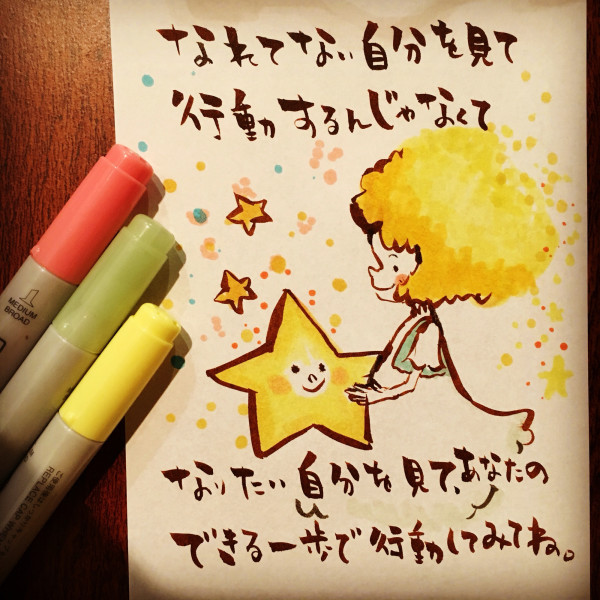 なれてない自分を見て
行動するんじゃなくて
なりたい自分を見て、あなたの
できる一歩で行動してみてね。
MEDIUM
BROAD
REPLACE CAP